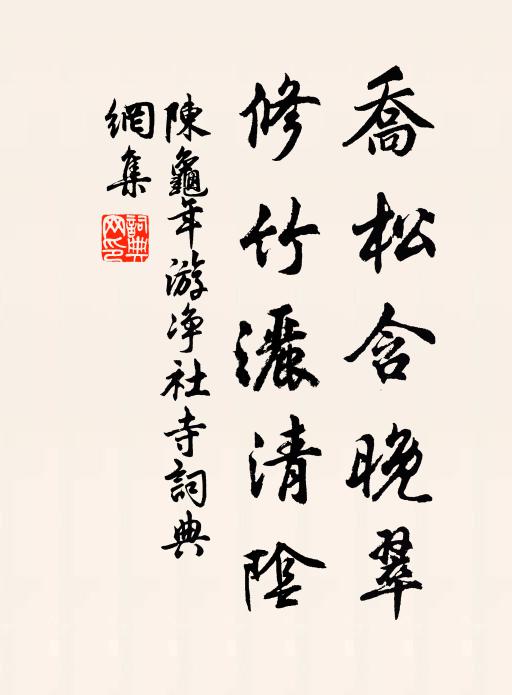 喬松含晚翠
修竹灑清陰
陳龜年游净社寺詞典
網集
詞典網印